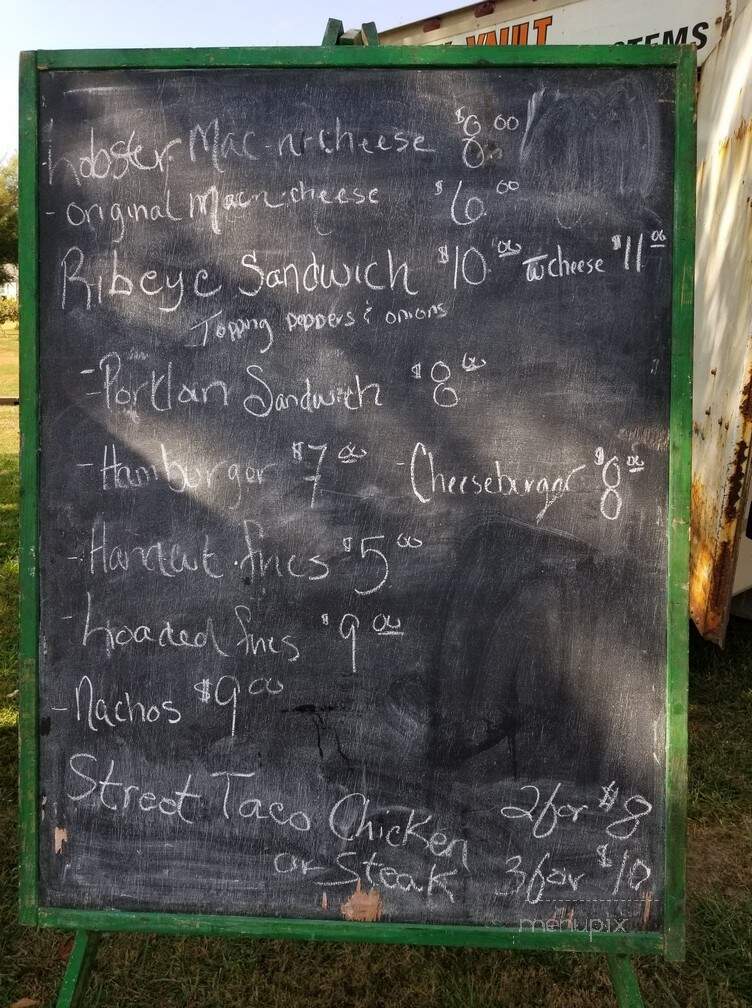 VNILT
STEMS
Lobster Mac-n-cheese $8.00
- original Mac n cheese $6.00
Ribeye Sandwich $10.00 w cheese $11.00
Topping peppers & onions
- Porkloin Sandwich $8.00
- Hamburger $7.00 - Cheeseburger $8.00
- Handcut fries $5.00
- Loaded fries $9.00
- Nachos $9.00
Street Taco Chicken 2 for $8
or Steak 3 for $10
menupix